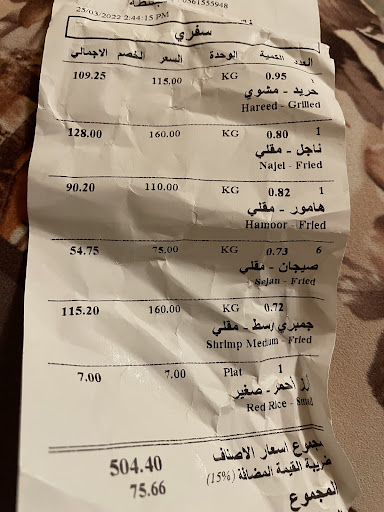 0561555948
25/03/2022 2:44:15 PM
سفري
العدد الكمية الوحدة السعر الخصم الاجمالي
1 0.95 KG 115.00 109.25
حريد - مشوي
Hareed - Grilled
1 0.80 KG 160.00 128.00
ناجل - مقلي
Najel - Fried
1 0.82 KG 110.00 90.20
هامور - مقلي
Hamoor - Fried
6 0.73 KG 75.00 54.75
صيجان - مقلي
Sejan - Fried
0.72 KG 160.00 115.20
جمبري وسط - مقلي
Shrimp Medium - Fried
1 Plat 7.00 7.00
رز احمر - صغير
Red Rice - Small
مجموع اسعار الاصناف 504.40
ضريبة القيمة المضافة (15%) 75.66
المجموع